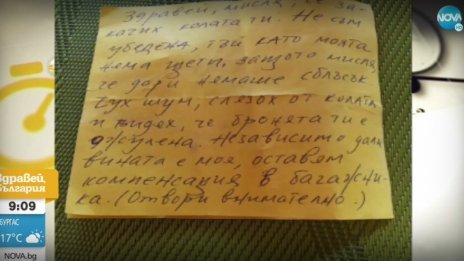 Здравей, мисля, че за-
качих колата ти. Не съм
убедена, тъй като моята
няма щети, защото мисля,
че дори нямаше сблъсък
Чух шум, слязох от колата
и видях, че бронята ти е
ожулена. Независимо дали
вината е моя, оставям
компенсация в багажни-
ка. (Отвори внимателно.)
NOVA
NOVA.bg
ЗДРАВЕЙ,
БЪЛГАРИЯ
9:09
БУРГАС
17°C
NOVA.bg